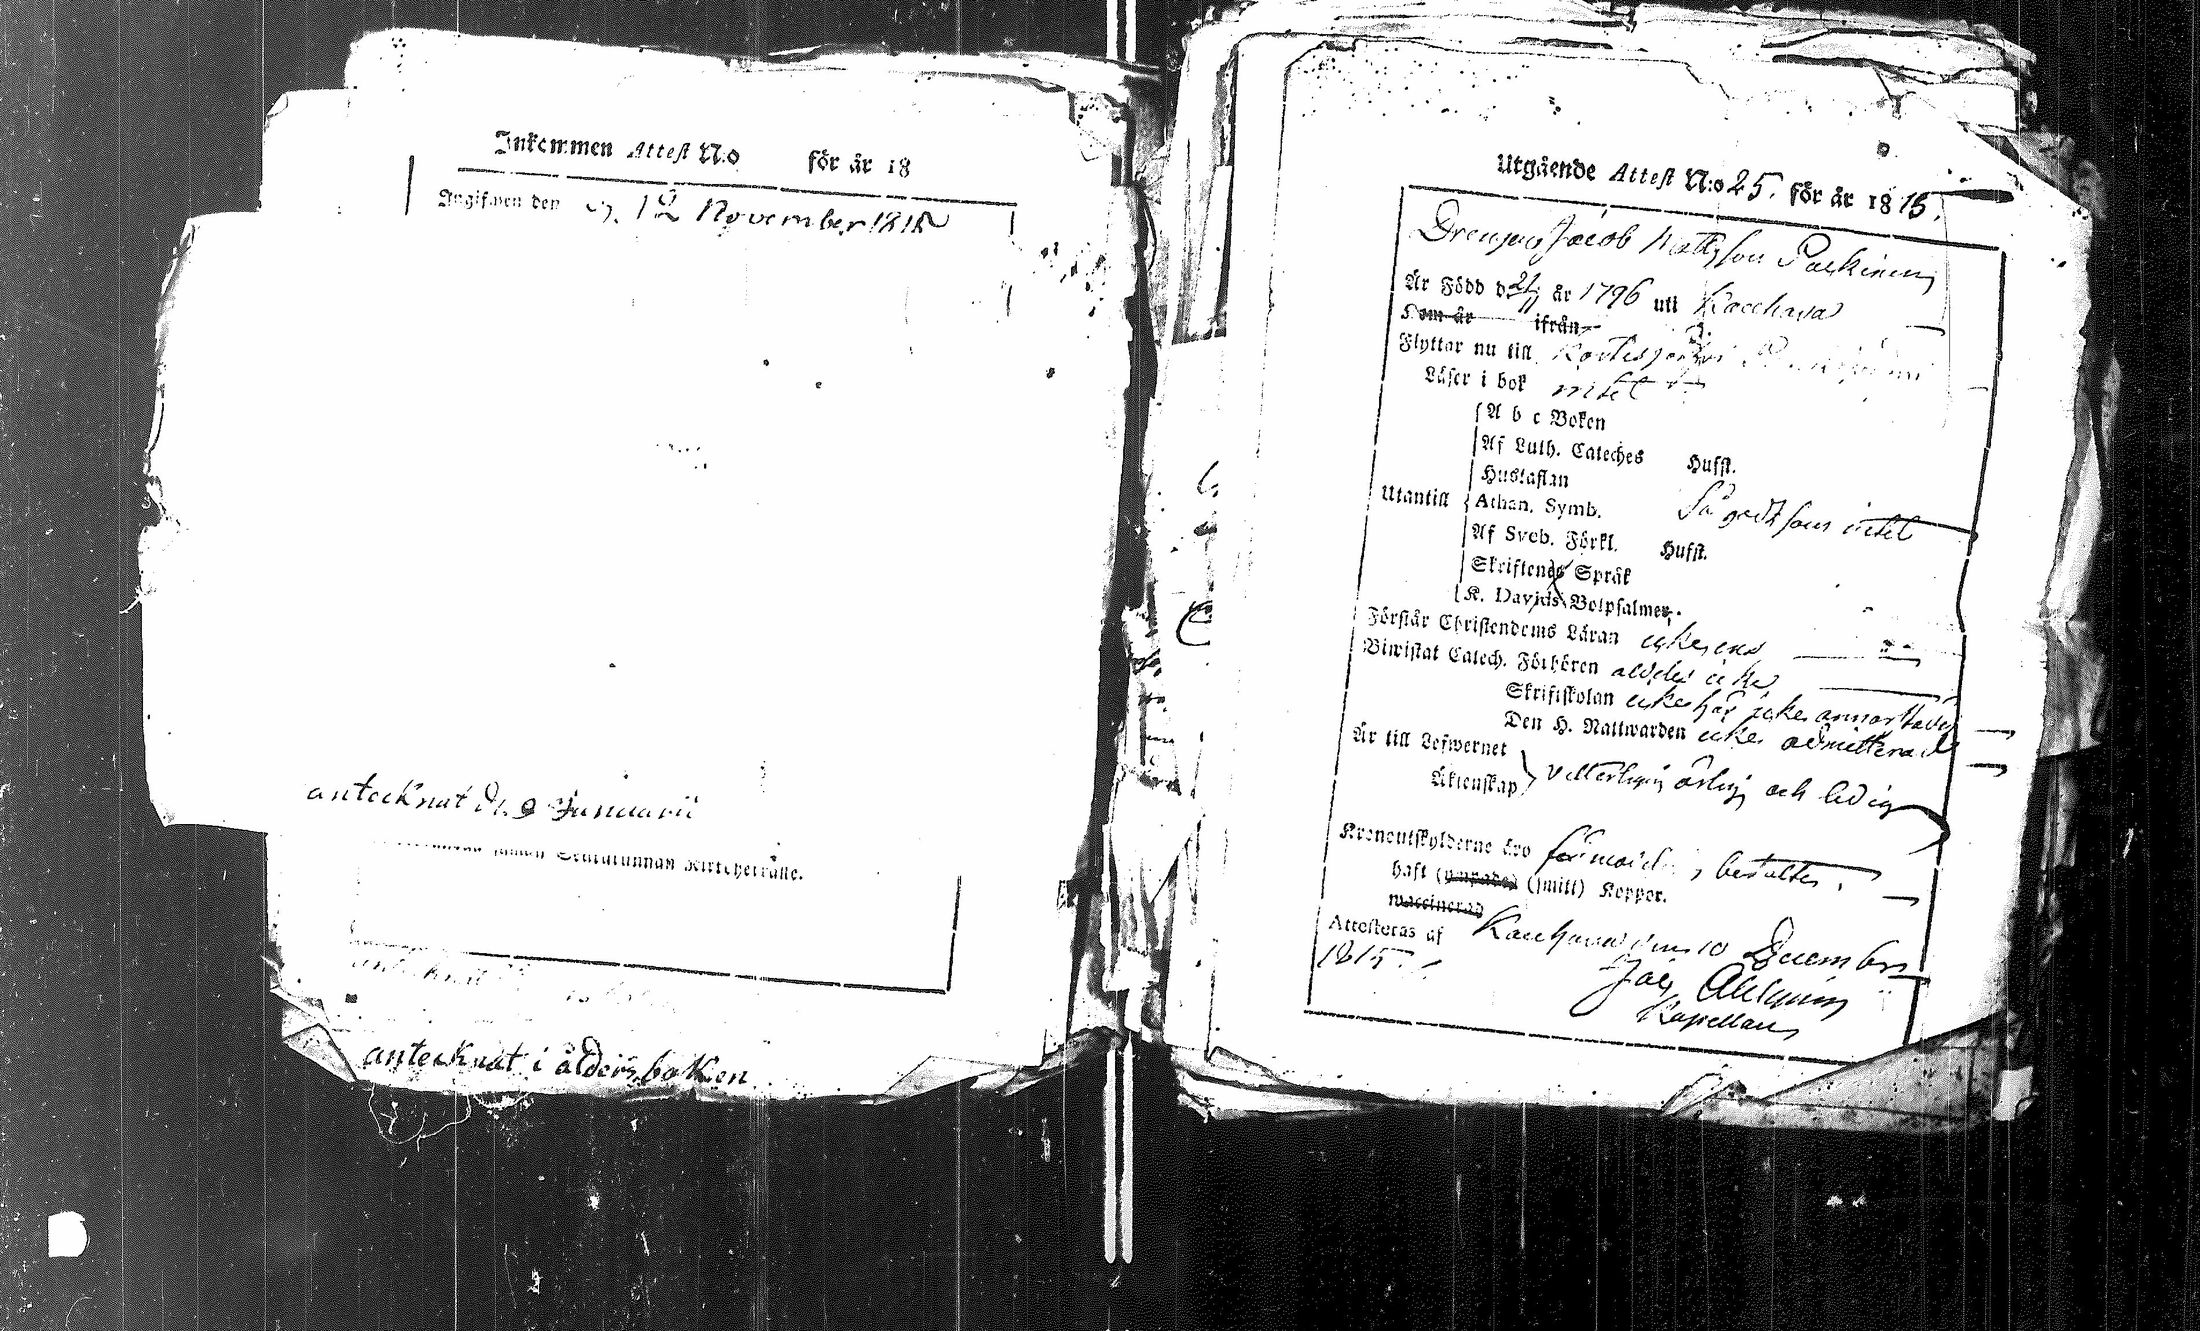 Inkommen Attest N:o för år 18
Angifwen den 12 November 1815
antecknat d. 9 Januarii
Kirkoherralle.
antecknat i åldersboken
Utgående Attest N:o 25. för år 1815.
Drengen Jacob Mattsson Paskinen
Är Född d. 21/11 år 1796 uti Kaechava
Kom år ifrån
Flyttar nu till
Läser i bok intet
A b c Boken
Af Luth. Cateches Hufst.
Hustaflan
Utantill Athan. Symb. Så godt som intet
Af Sveb. Förkl. Hufst.
Skriftenes Språk
K. Davids Botpsalmer.
Förstår Christendoms Läran ickeens
Biwistat Catech. Förhören aldeles icke
Skriftskolan icke här icke annorstädes
Den H. Nattwarden icke admitterad
Är till Lefwernet
Äktenskap wetterligen ärlig och ledig
Kronoutskylderne äro förmodeligen betalte.
haft (ympade) (smitt) Koppor.
waccinerad
Attesteras af Kaechava den 10 December
1815.
Kapellan